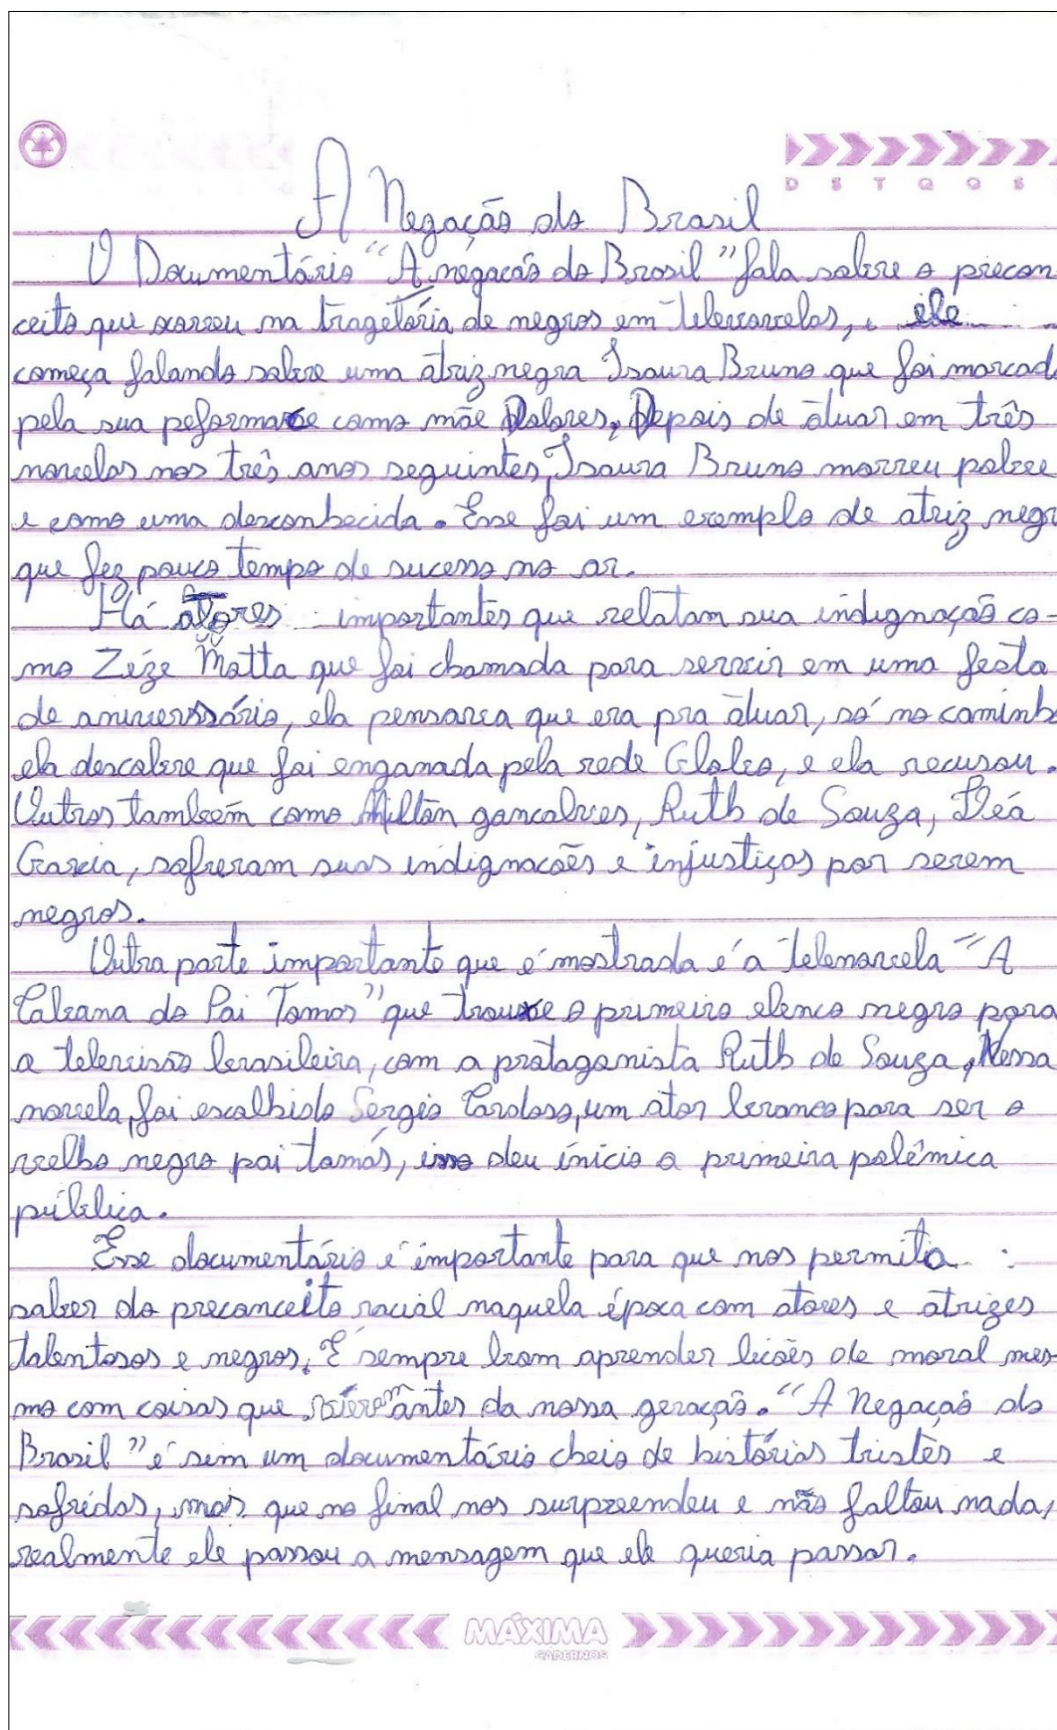 D S T Q Q S
A Negação do Brasil
O Documentário "A negacão do Brasil" fala sobre o precon
ceito que ocorreu na tragetória de negros em telenovelas, ele
começa falando sobre uma atriz negra Isaura Bruno que foi marcad
pela sua peformace como mãe Dolores, Depois de atuar em três
novelas nos três anos seguintes, Isaura Bruno morreu pobre
e como uma desconhecida. Esse foi um exemplo de atriz negr
que fez pouco tempo de sucesso no ar.
Há atores importantes que relatam sua indignação co-
mo Zéze Motta que foi chamada para servir em uma festa
de aniverssário, ela pensava que era pra atuar, só no caminh
ela descobre que foi enganada pela rede Globo, e ela recusou.
Outros também como Milton gancalves, Ruth de Souza, Léa
Garcia, sofreram suas indignacões e injustiços por serem
negros.
Outra parte importante que é mostrada é a telenovela "A
Cabana do Pai Tomos" que trouxe o primeiro elenco negro para
a televisão brasileira, com a protagonista Ruth de Souza, Nessa
novela, foi escolhido Sergio Cardoso, um ator branco para ser o
velho negro pai tomás, isso deu início a primeira polêmica
pública.
Esse documentário é importante para que nos permita
saber do preconceito racial naquela época com atores e atrizes
talentosos e negros. É sempre bom aprender licões de moral mes-
mo com coisas que antes da nossa geração. "A Negação do
Brasil" é sim um documentário cheio de histórias tristes e
sofridas, mas que no final nos surpreendeu e não faltou nada,
realmente ele passou a mensagem que ele queria passar.
MÁXIMA
CADERNOS